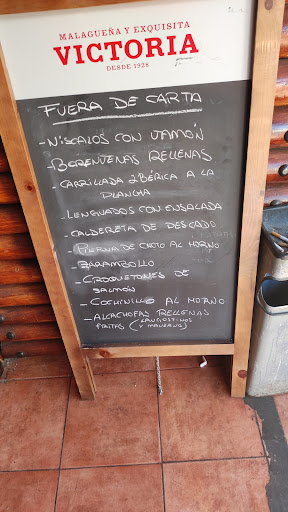 MALAGUEÑA Y EXQUISITA
VICTORIA
DESDE 1928
FUERA DE CARTA
- NÍSCALOS CON JAMÓN
- BERENJENAS RELLENAS
- CARRILLADA IBÉRICA A LA
PLANCHA
- LENGUADOS CON ENSALADA
- CALDERETA DE PESCADO
- PIERNA DE CHOTO AL HORNO
- ZARAMBOLLO
- CROQUETONES DE
SALMÓN
- COCHINILLO AL HORNO
- ALCACHOFAS RELLENAS
FRITAS (LANGOSTINOS
(Y MANZANA)